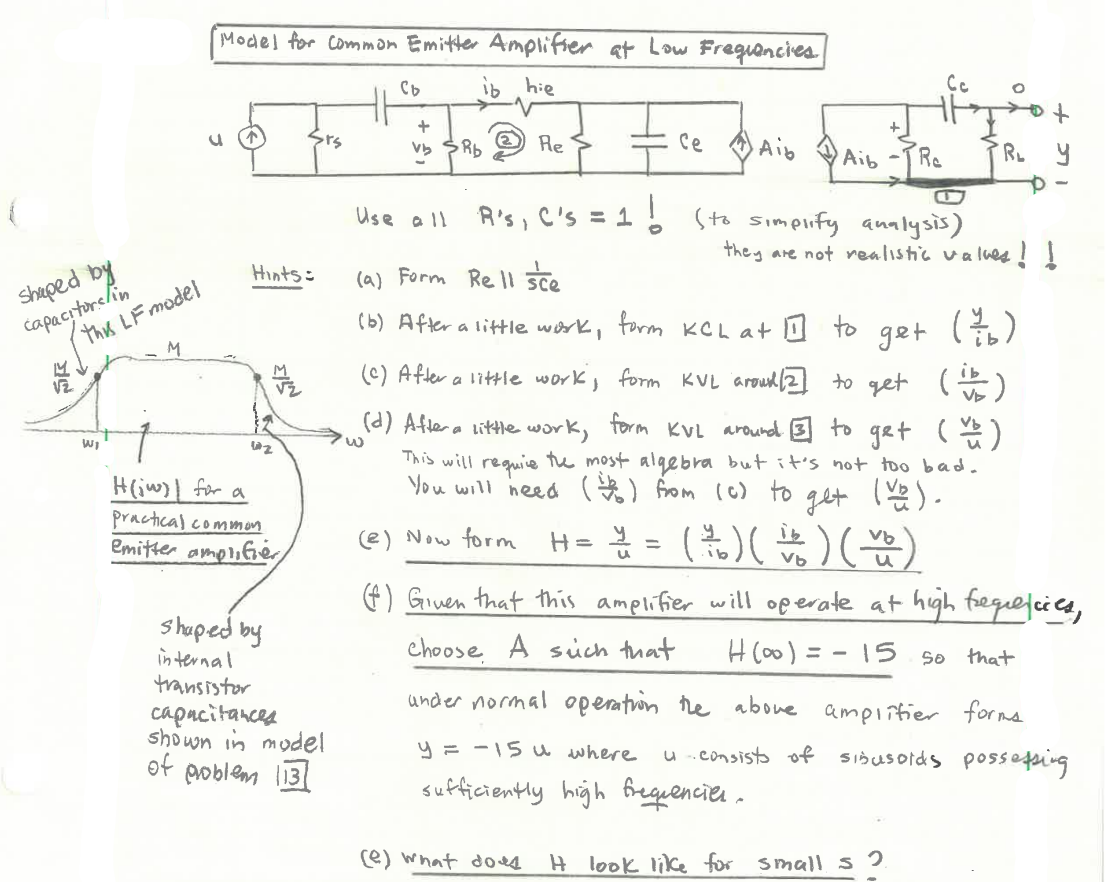 Model for Common Emitter Amplifier at Low Frequencies
Cb
ib
hie
u
rs
+
vb
-
Rb
2
Re
Ce
Aib
Cc
o
+
Aib
+
-
Rc
RL
y
-
1
Use all R's, C's = 1 ! (to simplify analysis)
they are not realistic values ! !
Hints:
(a) Form Re || 1/sCe
(b) After a little work, form KCL at 1 to get (y/ib)
(c) After a little work, form KVL around 2 to get (ib/vb)
(d) After a little work, form KVL around 3 to get (vb/u)
This will require the most algebra but it's not too bad.
You will need (ib/vb) from (c) to get (vb/u).
(e) Now form H = y/u = (y/ib)(ib/vb)(vb/u)
(f) Given that this amplifier will operate at high frequencies,
choose A such that H(∞) = - 15 so that
under normal operation the above amplifier forms
y = -15 u where u consists of sinusoids possessing
sufficiently high frequencies.
(e) What does H look like for small s ?
shaped by
capacitors in
this LF model
M
M/√2
M/√2
w1
w2
w
H(jw)| for a
practical common
emitter amplifier
shaped by
internal
transistor
capacitances
shown in model
of problem 13